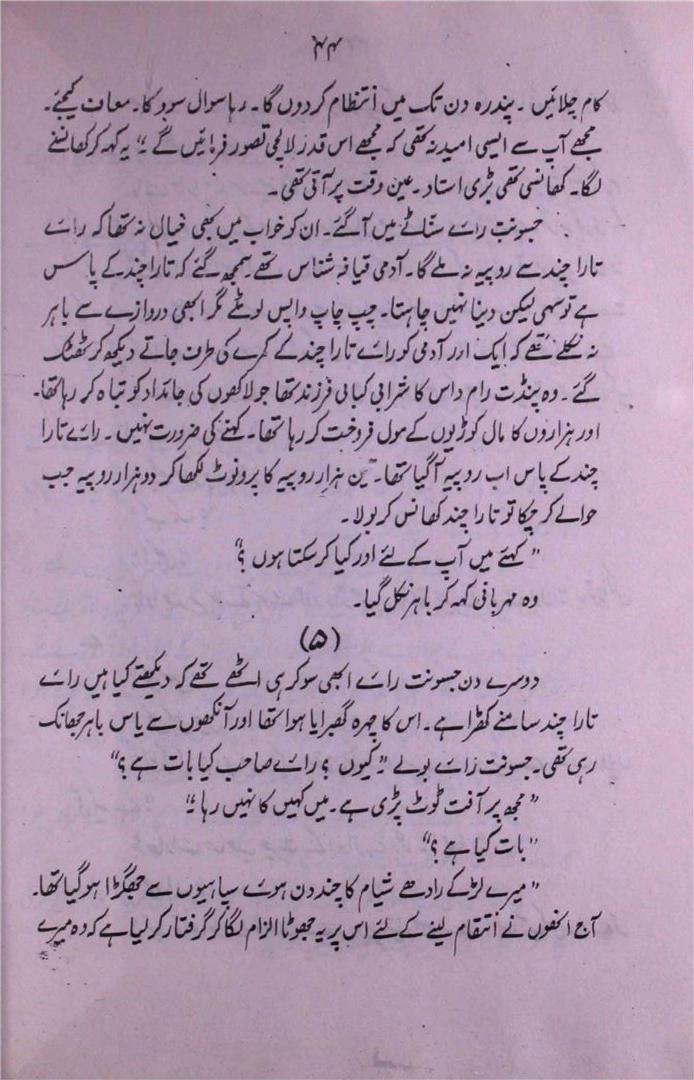 ۴۴
کام چلائیں ۔ پندرہ دن تک میں انتظام کر دوں گا۔ رہا سوال سود کا۔ معاف کیجئے۔
مجھے آپ سے ایسی امید نہ تھی کہ مجھے اس قدر لالچی تصور فرمائیں گے ؛" یہ کہہ کر کھانسنے
لگا۔ کھانسی تھی بڑی استاد ۔ عین وقت پر آتی تھی ۔
جسونت رائے سنّاٹے میں آ گئے۔ ان کو خواب میں بھی خیال نہ تھا کہ رائے
تارا چند سے روپیہ نہ ملے گا۔ آدمی قیافہ شناس تھے سمجھ گئے کہ تارا چند کے پاس
ہے تو سہی لیکن دینا نہیں چاہتا۔ چپ چاپ واپس لوٹے مگر ابھی دروازے سے باہر
نہ نکلے تھے کہ ایک اور آدمی کو رائے تارا چند کے کمرے کی طرف جاتے دیکھ کر ٹھٹک
گئے ۔ وہ پنڈت رام داس کا شرابی کبابی فرزند تھا جو لاکھوں کی جائداد کو تباہ کر رہا تھا۔
اور ہزاروں کا مال کوڑیوں کے مول فروخت کر رہا تھا۔ کہنے کی ضرورت نہیں ۔ رائے تارا
چند کے پاس اب روپیہ آ گیا تھا۔ تین ہزار روپیہ کا پرونوٹ لکھا کر دو ہزار روپیہ جب
حوالے کر چکا تو تارا چند کھانس کر بولا ۔
"کہئے میں آپ کے لئے اور کیا کر سکتا ہوں ؟"
وہ مہربانی کہہ کر باہر نکل گیا۔
(۵)
دوسرے دن جسونت رائے ابھی سو کر ہی اٹھے تھے کہ دیکھتے کیا ہیں رائے
تارا چند سامنے کھڑا ہے۔ اس کا چہرہ گھبرایا ہوا تھا اور آنکھوں سے یاس باہر جھانک
رہی تھی۔ جسونت رائے بولے "کیوں ؟ رائے صاحب کیا بات ہے ؟"
"مجھ پر آفت ٹوٹ پڑی ہے۔ میں کہیں کا نہیں رہا ؛"
"بات کیا ہے ؟"
"میرے لڑکے رادھے شیام کا چند دن ہوئے سپاہیوں سے جھگڑا ہو گیا تھا۔
آج انھوں نے انتقام لینے کے لئے اس پر یہ جھوٹا الزام لگا کر گرفتار کر لیا ہے کہ وہ میرے